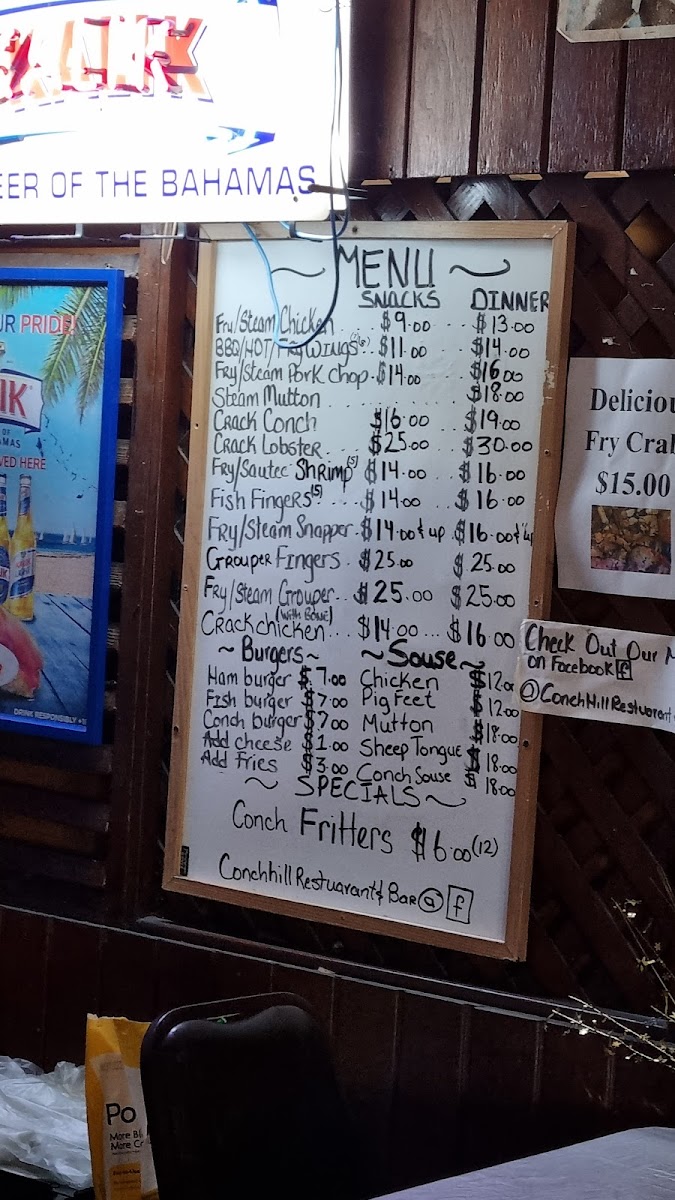 BEER OF THE BAHAMAS
UR PRIDE!
IK
OF
AMAS
VED HERE
DRINK RESPONSIBLY
MENU
SNACKS DINNER
Fry/Steam Chicken . . . $9.00 . . . $13.00
BBQ/HOT/FRY WINGS(6) . . $11.00 . . . $14.00
Fry/Steam Pork Chop . $14.00 $16.00
Steam Mutton . . . . . . . . . . $18.00
Crack Conch $16.00 . . $19.00
Crack Lobster . . $25.00 . . $30.00
Fry/Sautee SHRIMP(15) $14.00 . . $16.00
Fish Fingers(5) . $14.00 . . $16.00
Fry/Steam Snapper . $14.00 & up . $16.00 & up
Grouper Fingers . $25.00 $25.00
Fry/Steam Grouper . . $25.00 $25.00
Crack chicken (WITH BONE) . . . $14.00 . . . $16.00
~ Burgers ~ ~ Souse ~
Ham burger $7.00 Chicken $12.00
Fish burger $7.00 Pig Feet $12.00
Conch burger $7.00 Mutton $18.00
Add cheese $1.00 Sheep Tongue $18.00
Add Fries $3.00 Conch Souse $18.00
~ SPECIALS ~
Conch Fritters $6.00 (12)
Conchhill Restuarant & Bar @ f
Deliciou
Fry Cra
$15.00
Check Out Our M
on Facebook f
@ConchHillRestuarant
Po
More Bl
More Cr